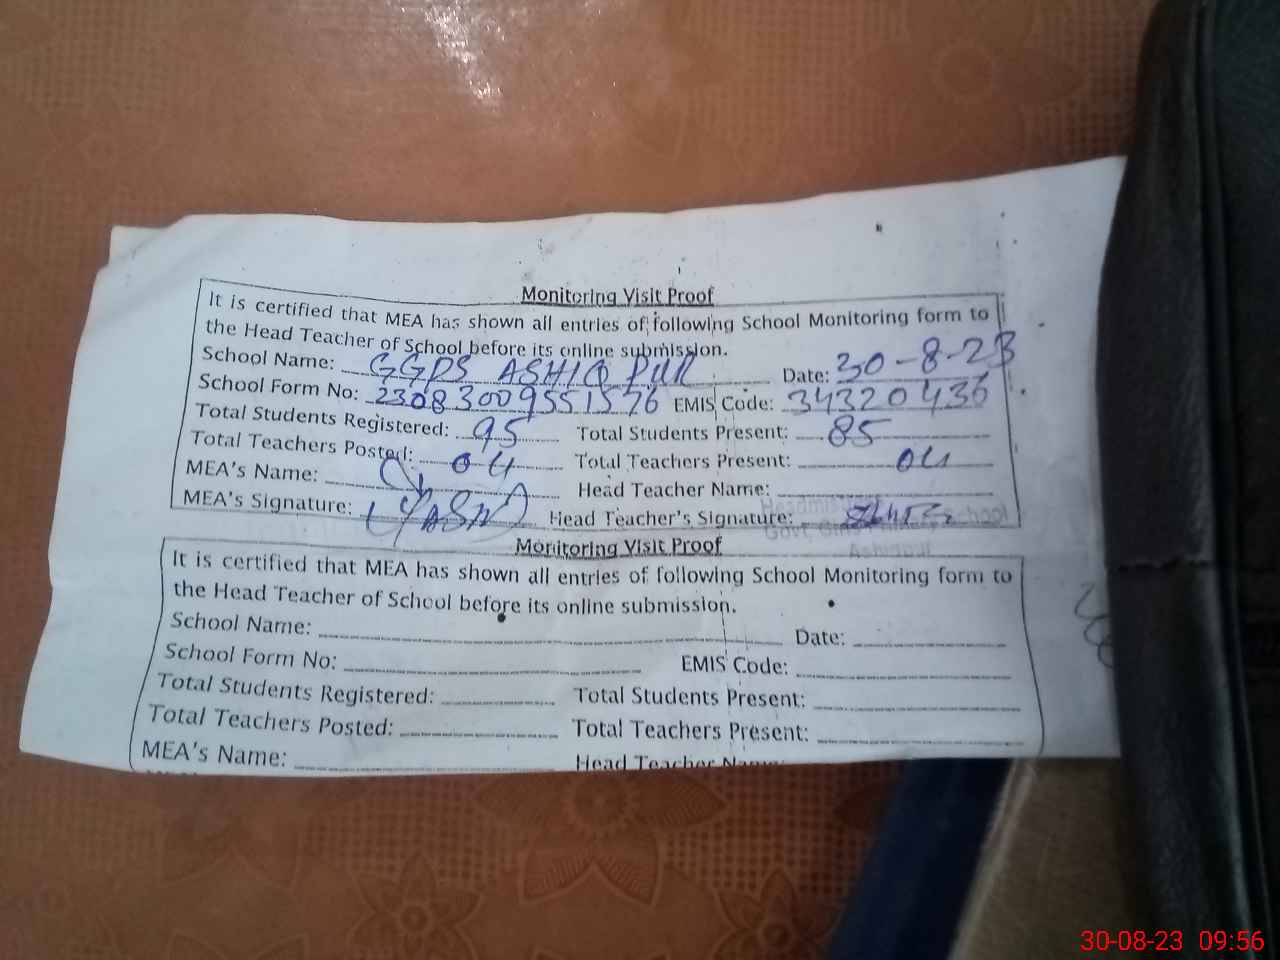 Monitoring Visit Proof
It is certified that MEA has shown all entries of following School Monitoring form to
the Head Teacher of School before its online submission.
School Name: GGPS ASHIQ PUR Date: 30-8-23
School Form No: 23083009551576 EMIS Code: 34320436
Total Students Registered: 95 Total Students Present: 85
Total Teachers Posted: 04 Total Teachers Present: 04
MEA's Name: Head Teacher Name:
MEA's Signature: Head Teacher's Signature:
Monitoring Visit Proof
It is certified that MEA has shown all entries of following School Monitoring form to
the Head Teacher of School before its online submission.
School Name: Date:
School Form No: EMIS Code:
Total Students Registered: Total Students Present:
Total Teachers Posted: Total Teachers Present:
MEA's Name: Head Teacher Name:
30-08-23 09:56